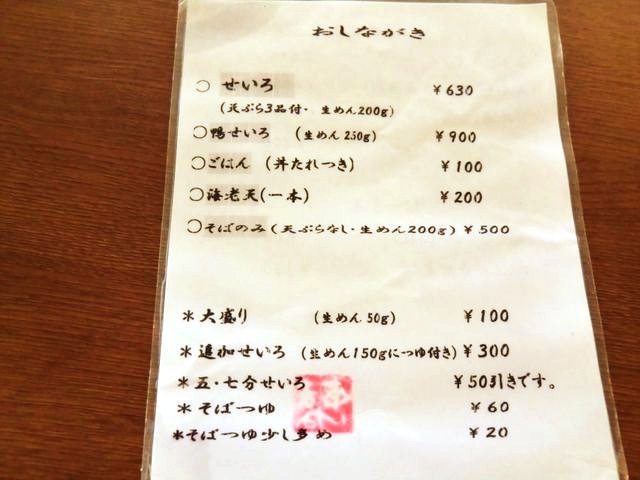 おしながき
○ せいろ ¥630
(天ぷら3品付・ 生めん200g)
○鴨せいろ (生めん250g) ¥900
○ごはん (丼たれつき) ¥100
○海老天(一本) ¥200
○そばのみ(天ぷらなし・生めん200g) ¥500
*大盛り (生めん50g) ¥100
*追加せいろ (生めん150gにつゆ付き) ¥300
*五・七分せいろ ¥50引きです。
*そばつゆ ¥60
*そばつゆ少し多め ¥20